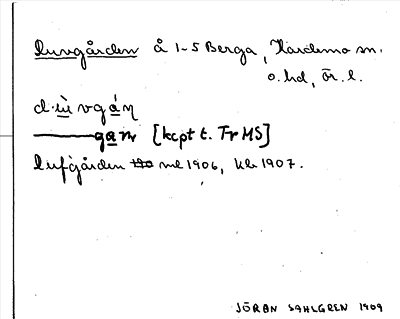 Duvgården å 1-5 Berga, Hardemo sn.
o. hd, Ör. l.
d·ùvgáη
———gaṛ [kcpt t. Tr MS]
Dufgården ml 1906, kb 1907.
JÖRAN SAHLGREN 1909